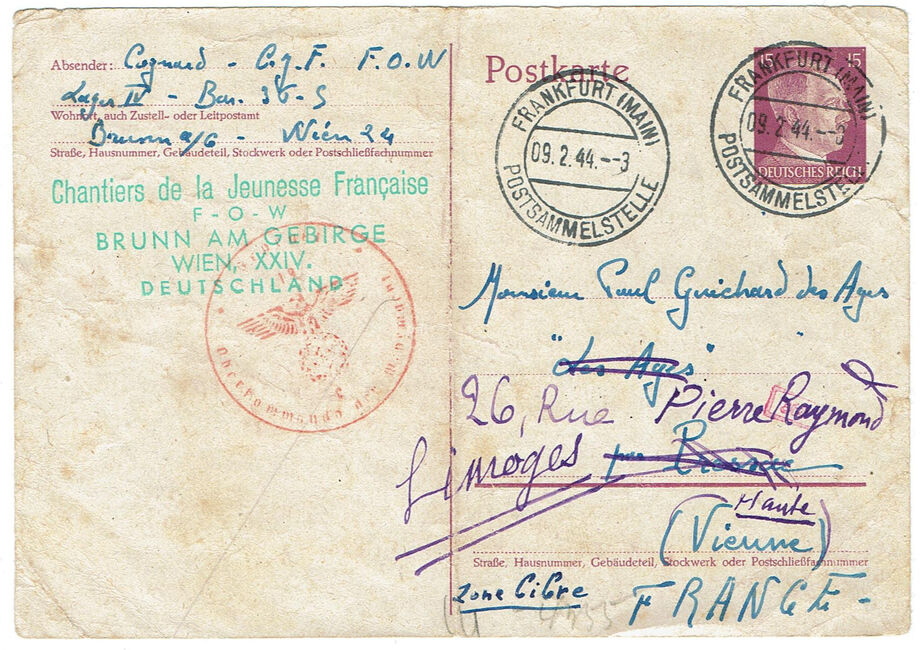 Absender: Cognard - C.J.F. F.O.W
Lager IV - Bar. 36-5
Wohnort, auch Zustell- oder Leitpostamt
Brunn a/G - Wien 24
Straße, Hausnummer, Gebäudeteil, Stockwerk oder Postschließfachnummer
Chantiers de la Jeunesse Française
F-O-W
BRUNN AM GEBIRGE
WIEN, XXIV.
DEUTSCHLAND
Oberkommando der
Postkarte
FRANKFURT (MAIN)
09.2.44.--3
POSTSAMMELSTELLE
FRANKFURT (MAIN)
09.2.44.--3
POSTSAMMELSTELLE
15 15
DEUTSCHES REICH
Monsieur Paul Guichard des Ages
"Les Ages"
26, Rue Pierre Raymond
Limoges par
Haute
(Vienne)
Straße, Hausnummer, Gebäudeteil, Stockwerk oder Postschließfachnummer
zone Libre FRANCE -